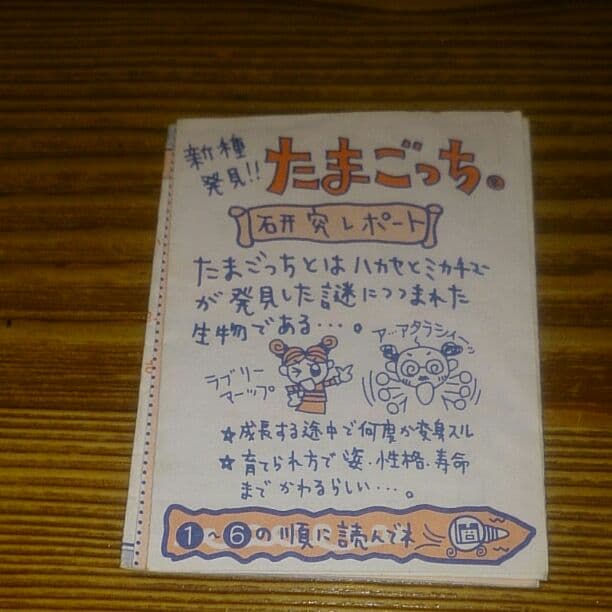 新種
発見!!
たまごっち
研究レポート
たまごっちとはハカセとミカチュー
が発見した謎につつまれた
生物である…。
ア…アタラシィーッ
ラブリー
マーップ
☆成長する途中で何度か変身スル
☆育てられ方で姿・性格・寿命
までかわるらしい…。
1〜6の順に読んでネ